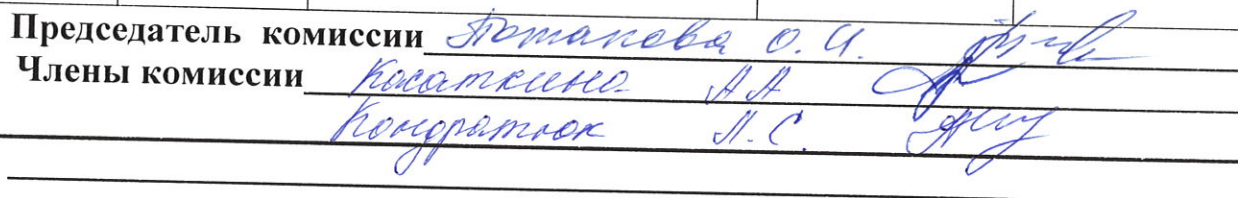 Председатель комиссии Потапова О. И.
Члены комиссии Косаткина А А
Кондратюк Л. С.